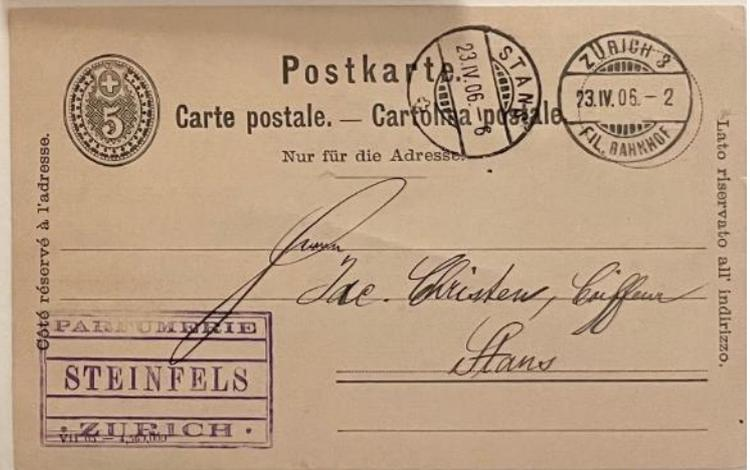 Postkarte.
Carte postale. — Cartolina postale.
Nur für die Adresse.
5
STANS
23.IV.06. 6
ZÜRICH 3
23.IV.06. - 2
FIL. BAHNHOF
Côté réservé à l'adresse.
Lato riservato all' indirizzo.
Herrn
Jac. Christen, Coiffeur
Stans
PARFUMERIE
STEINFELS
· ZURICH ·